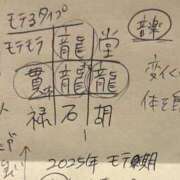 モテるタイプ
モテモテ 龍 堂 音楽
貫 龍 龍 変
禄 石 胡 体を
2025年 モテ期